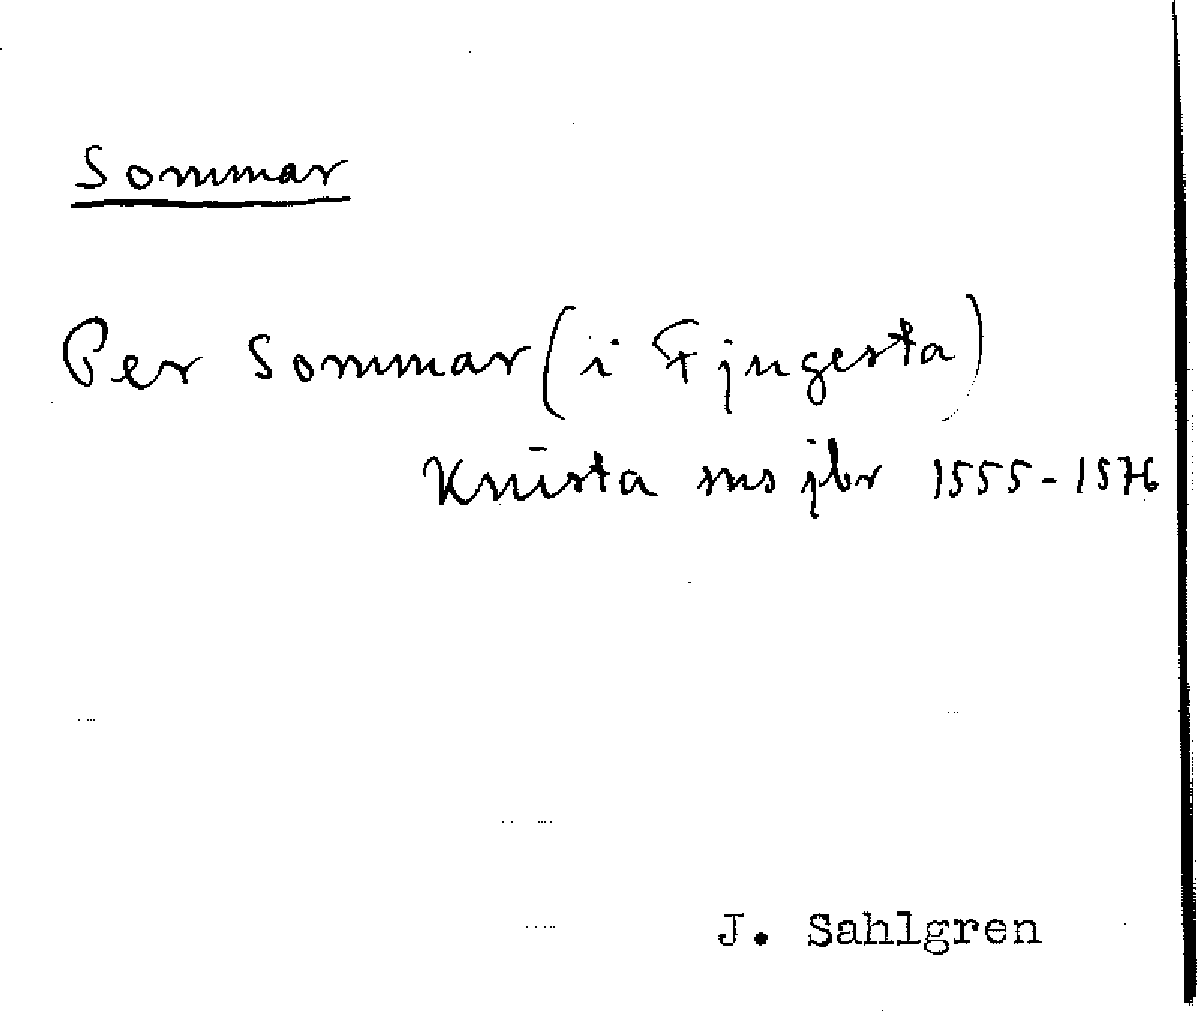 Sommar
Per Sommar (i Fjugesta)
Knista sns jbr 1555-1576
J. Sahlgren